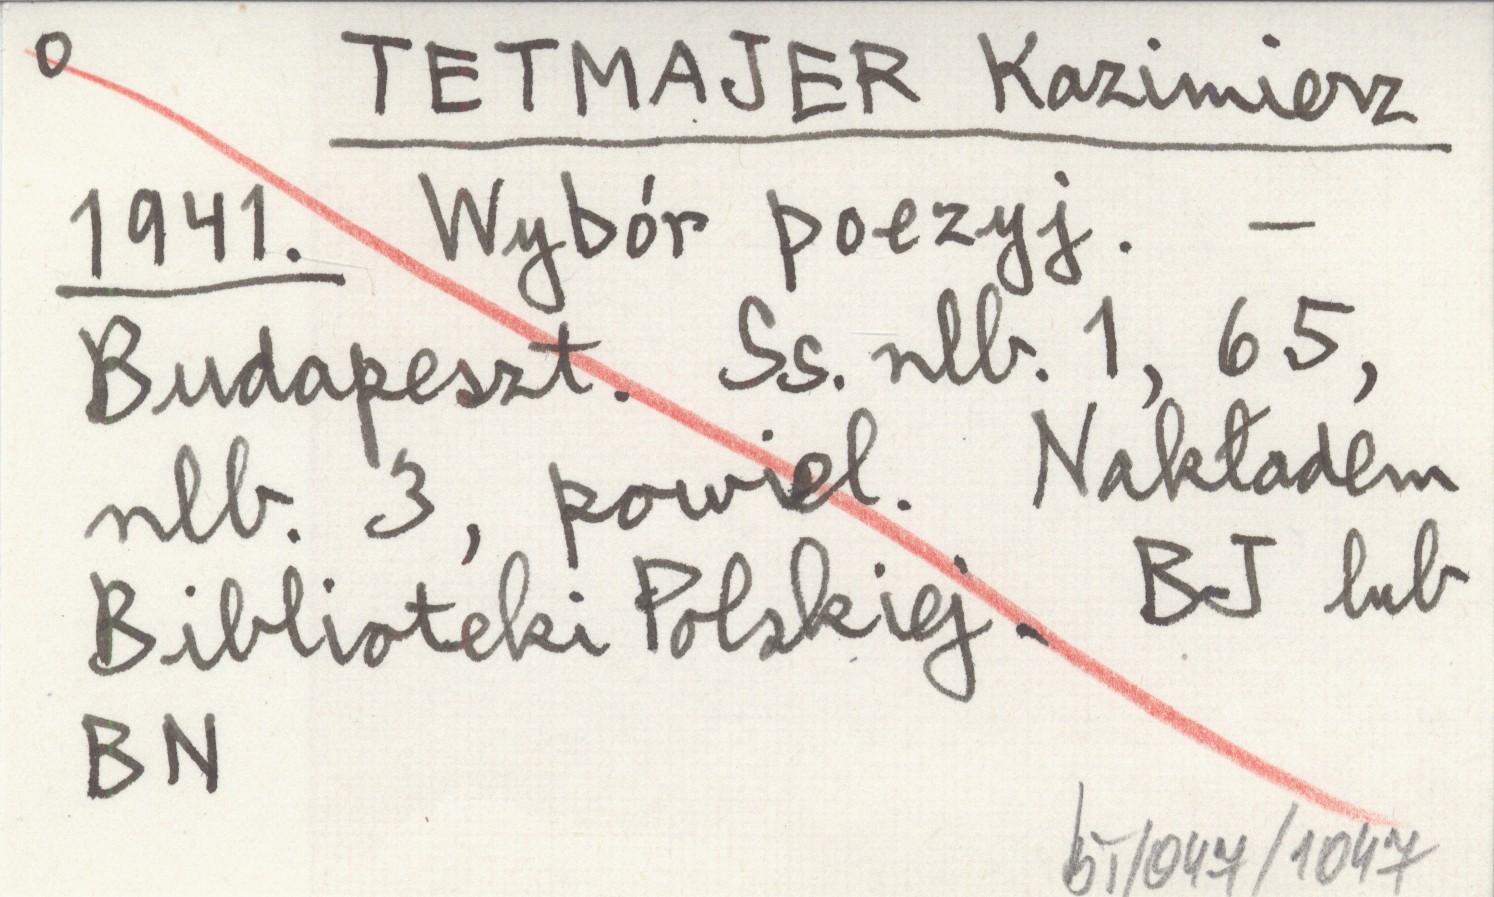 o TETMAJER Kazimierz
1941. Wybór poezyj. –
Budapeszt. Ss. nlb. 1, 65,
nlb. 3, powiel. Nakładem
Biblioteki Polskiej. BJ lub
BN
/047/1047